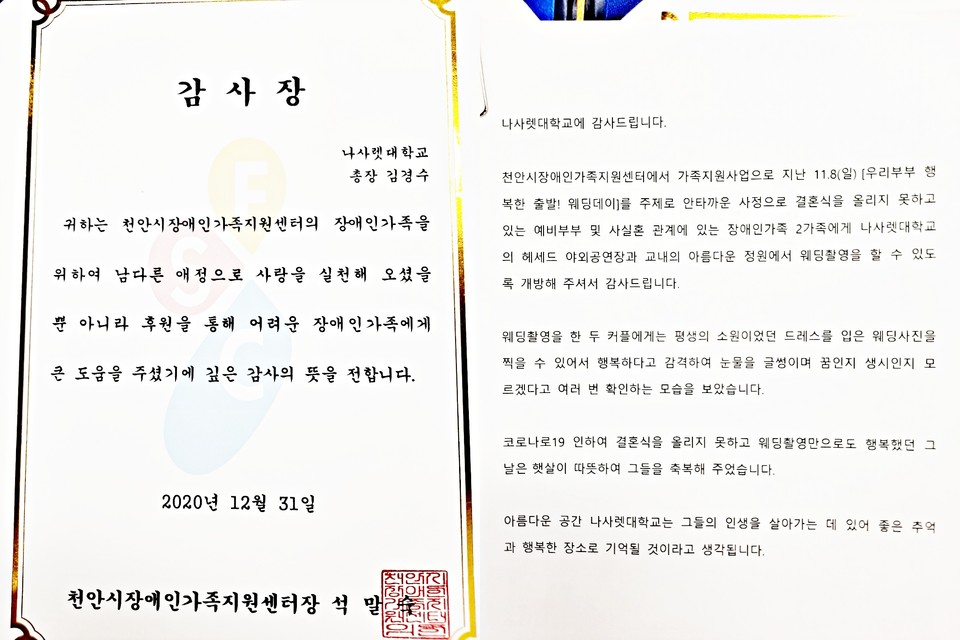 감 사 장
나사렛대학교
총장 김경수
귀하는 천안시장애인가족지원센터의 장애인가족을
위하여 남다른 애정으로 사랑을 실천해 오셨을
뿐 아니라 후원을 통해 어려운 장애인가족에게
큰 도움을 주셨기에 깊은 감사의 뜻을 전합니다.
2020년 12월 31일
천안시장애인가족지원센터장 석 말
나사렛대학교에 감사드립니다.
천안시장애인가족지원센터에서 가족지원사업으로 지난 11.8(일) [우리부부 행
복한 출발! 웨딩데이]를 주제로 안타까운 사정으로 결혼식을 올리지 못하고
있는 예비부부 및 사실혼 관계에 있는 장애인가족 2가족에게 나사렛대학교
의 헤세드 야외공연장과 교내의 아름다운 정원에서 웨딩촬영을 할 수 있도
록 개방해 주셔서 감사드립니다.
웨딩촬영을 한 두 커플에게는 평생의 소원이었던 드레스를 입은 웨딩사진을
찍을 수 있어서 행복하다고 감격하여 눈물을 글썽이며 꿈인지 생시인지 모
르겠다고 여러 번 확인하는 모습을 보았습니다.
코로나로19 인하여 결혼식을 올리지 못하고 웨딩촬영만으로도 행복했던 그
날은 햇살이 따뜻하여 그들을 축복해 주었습니다.
아름다운 공간 나사렛대학교는 그들의 인생을 살아가는 데 있어 좋은 추억
과 행복한 장소로 기억될 것이라고 생각됩니다.